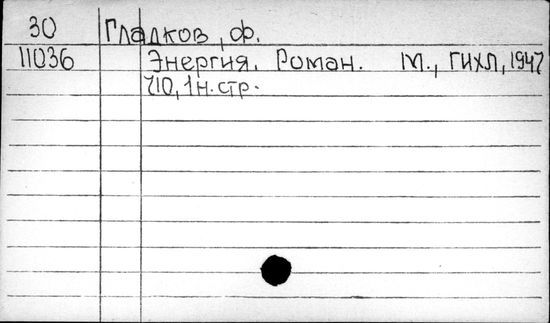 30 Гладков, Ф.
11036 Энергия. Роман. М., ГИХЛ, 1947
710, 1 н. стр.